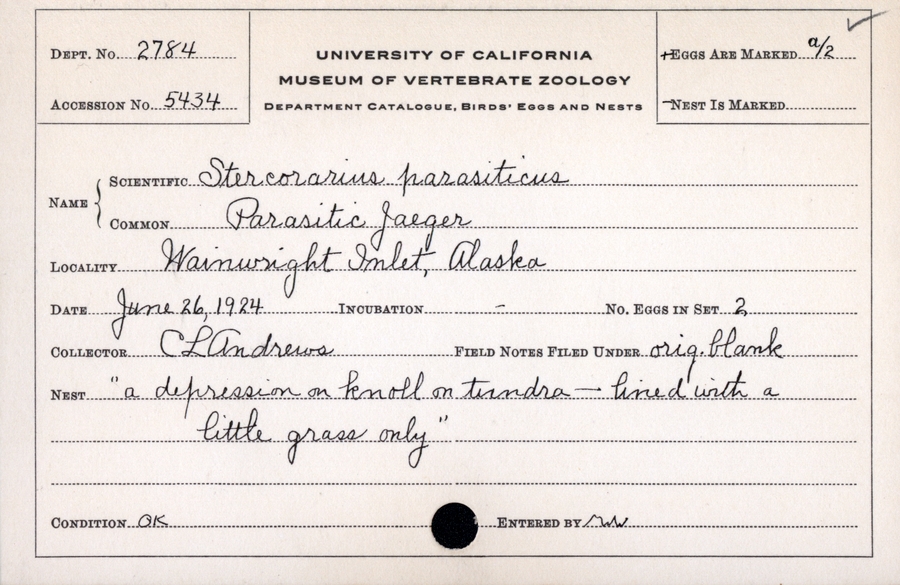 Dept. No. 2784
Accession No. 5434
UNIVERSITY OF CALIFORNIA
MUSEUM OF VERTEBRATE ZOOLOGY
Department Catalogue, Birds' Eggs and Nests
Eggs Are Marked a/2
Nest Is Marked
Name
Scientific Stercorarius parasiticus
Common Parasitic Jaeger
Locality Wainwright Inlet, Alaska
Date June 26, 1924 Incubation - No. Eggs in Set 2
Collector C L Andrews Field Notes Filed Under orig. blank
Nest "a depression on knoll on tundra — lined with a
little grass only"
Condition OK Entered by